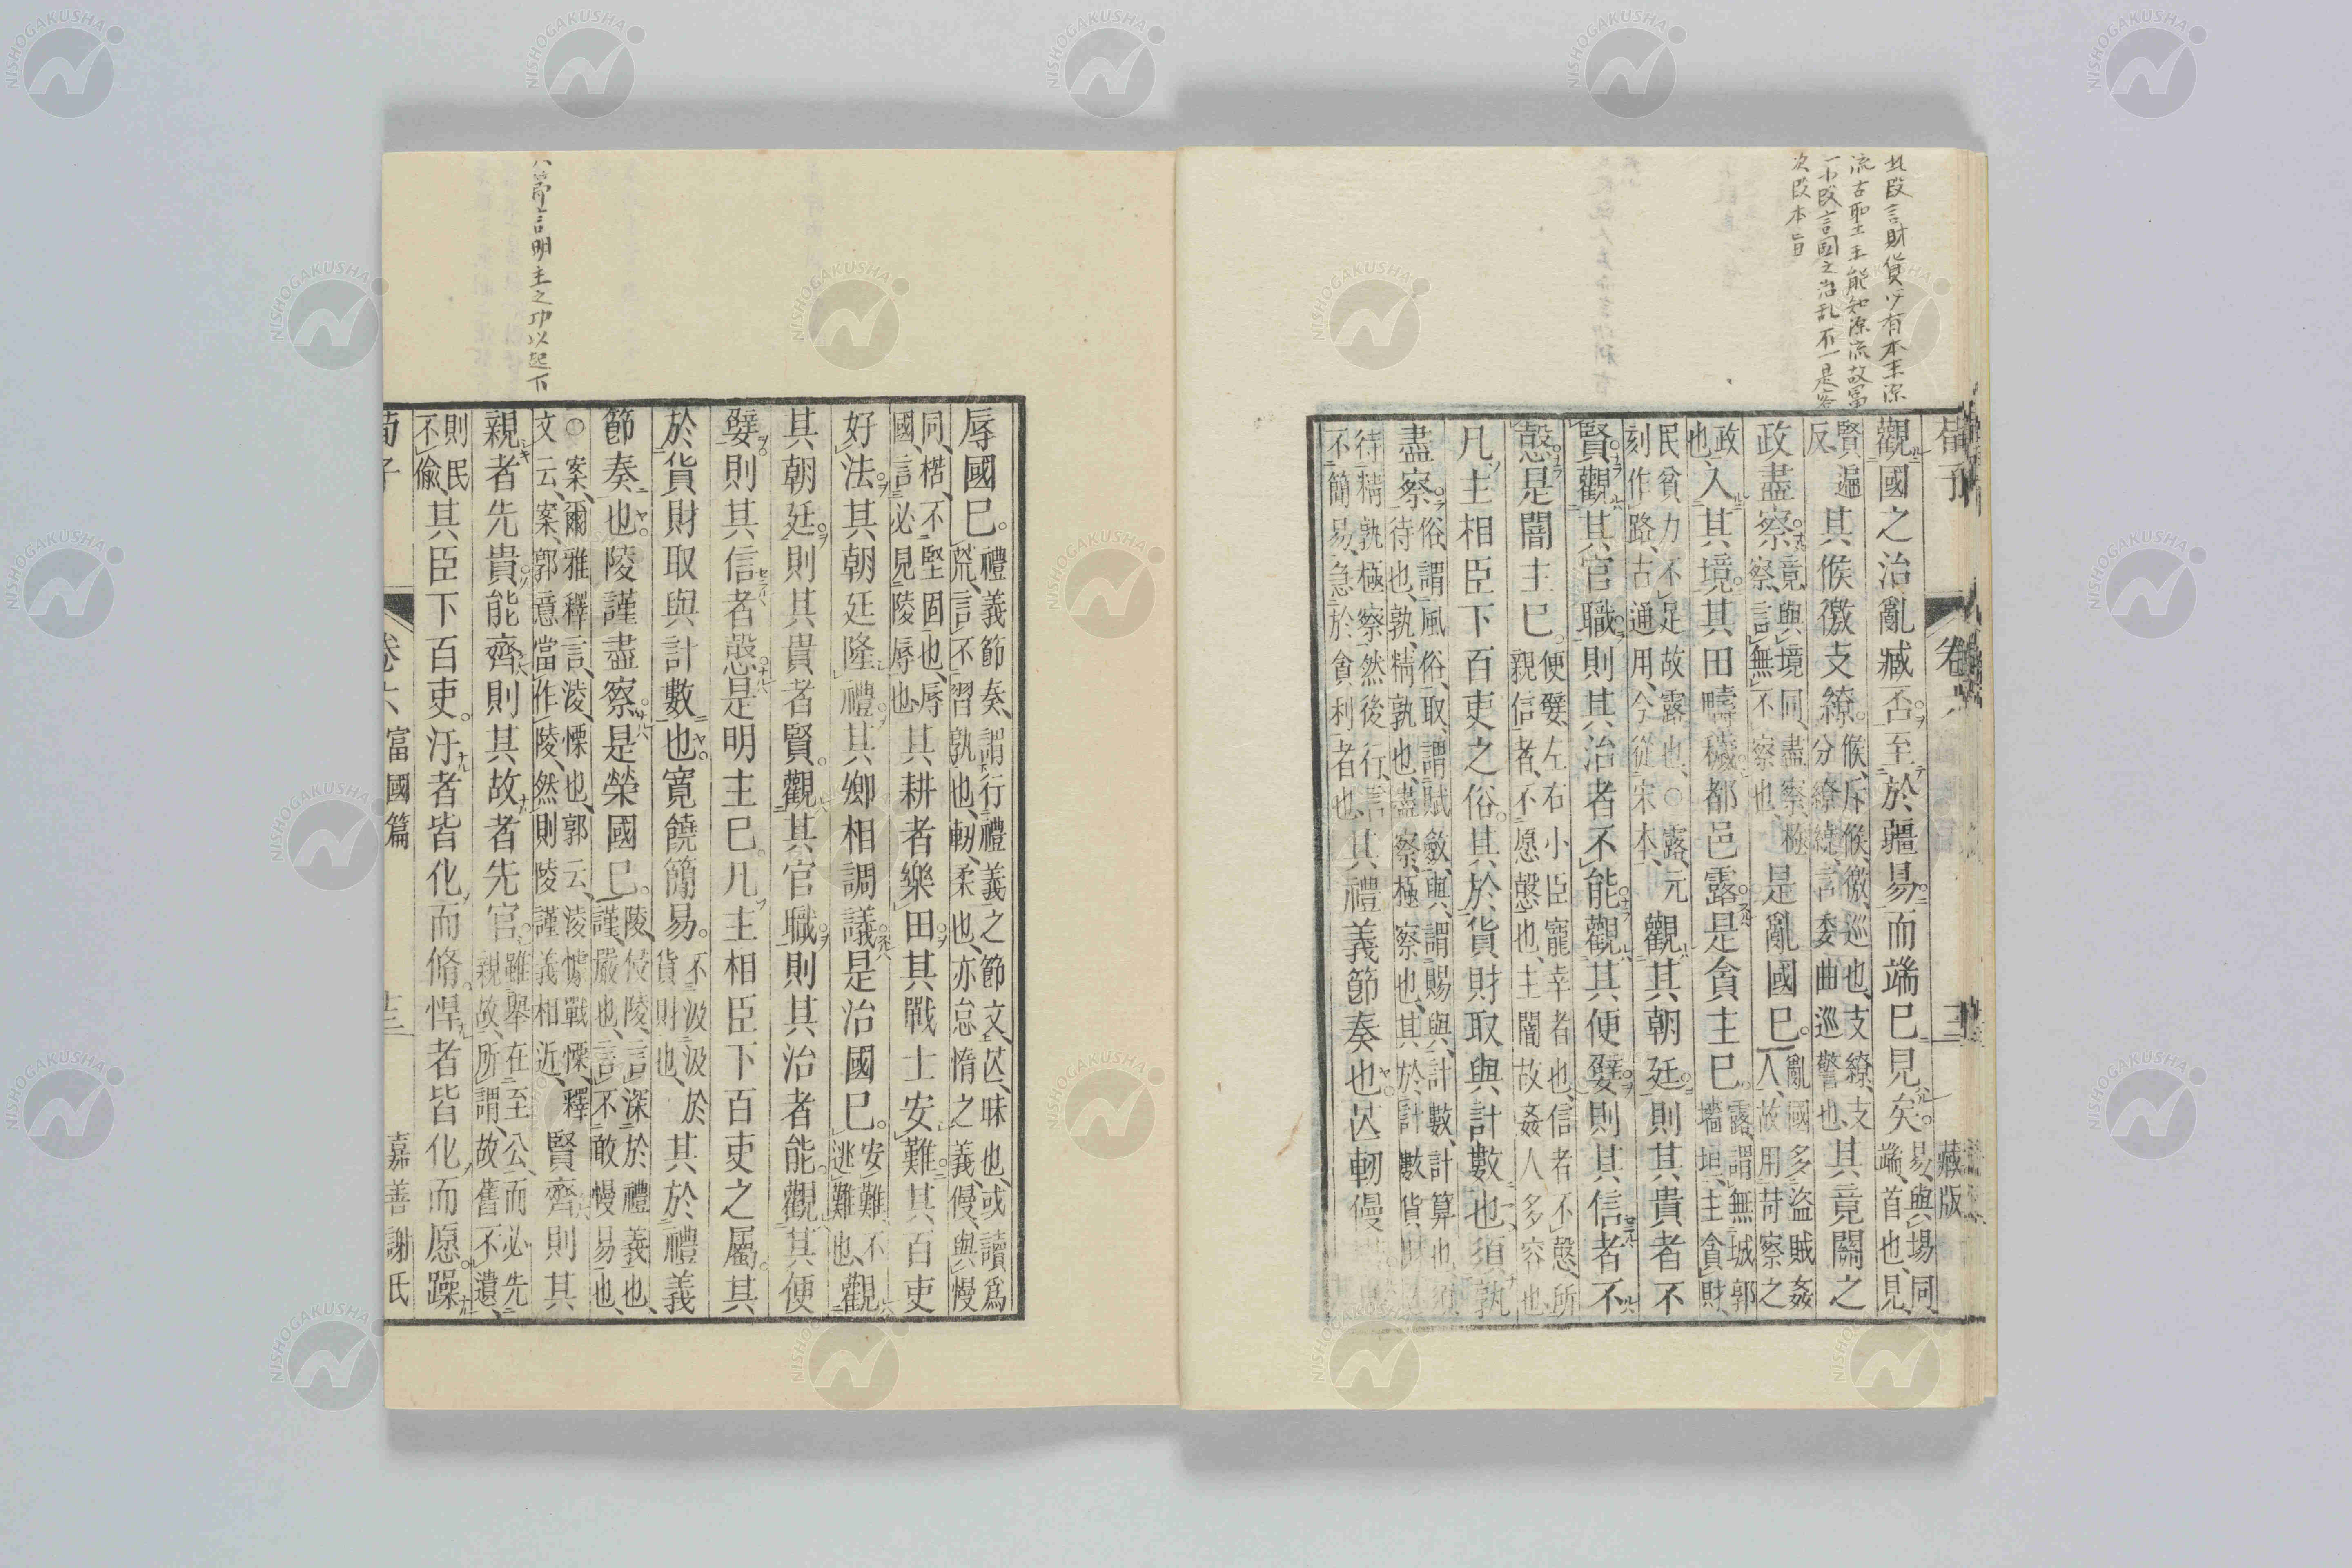 此段言財貨必有本末源
流古聖王能知源流故富
一小段言國之治乱不一是容
次段本旨
荀子
卷六
藏版
觀國之治亂臧否至於疆易而端已見矣。易、與場同、
端、首也、見、
賢遍
反、
其候徼支繚。候、斥候、徼、巡也、支繚、支
分繚繞、言委曲巡警也、
其竟關之
政盡察竟與境同、盡察、極
察、言無不察也、
是亂國已。亂國多盜賊姦
人、故用苛察之
政
也、
入其境。其田疇穢都邑露是貪主已。露、謂無城郭
墻垣、主貪財、
民貧力不足故露也、○露、元
刻作路、古通用、今從宋本、
觀其朝廷則其貴者不
賢觀其官職則其治者不能觀其便嬖則其信者不
愨是闇主已。便嬖、左右小臣寵幸者也、信者不愨、所
親信者、不愿愨也、主闇故姦人多容也、
凡主相臣下百吏之俗。其於貨財取與計數也須孰
盡察俗、謂風俗、取、謂賦斂、與、謂賜與、計數、計算也、須、
待也、孰、精孰也、盡察、極察也、其於計數貨財
待精孰極察然後行、言
不簡易、急於貪利者也、
其禮義節奏也芒軔僈
辱國已。禮義節奏、謂行禮義之節文、芒、昧也、或讀為
荒、言不習孰也、軔、柔也、亦怠惰之義、僈、與慢
同、楛、不堅固也、辱
國、言必見陵辱也、
其耕者樂田其戰士安難其百吏
好法其朝廷隆禮其卿相調議是治國已。安難、不
逃難也、
觀
其朝廷則其貴者賢。觀其官職則其治者能。觀其便
嬖則其信者愨是明主已。凡主相臣下百吏之屬。其
於貨財取與計數也寬饒簡易。不汲汲於
貨財也、
其於禮義
節奏也陵謹盡察是榮國已。陵、侵陵、言深於禮義也、
謹、嚴也、言不敢慢易也、
○案、爾雅釋言、淩、慄也、郭云、淩懅戰慄、釋
文云、案、郭意當作陵、然則陵謹義相近、
賢齊則其
親者先貴能齊則其故者先官。雖舉在至公、而必先
親故、所謂故舊不遺、
則民
不偷、
其臣下百吏。汙者皆化而脩。悍者皆化而愿。躁
荀子
卷六
富國篇
十三
嘉善謝氏
八節言明主之功以起下
NISHOGAKUSHA